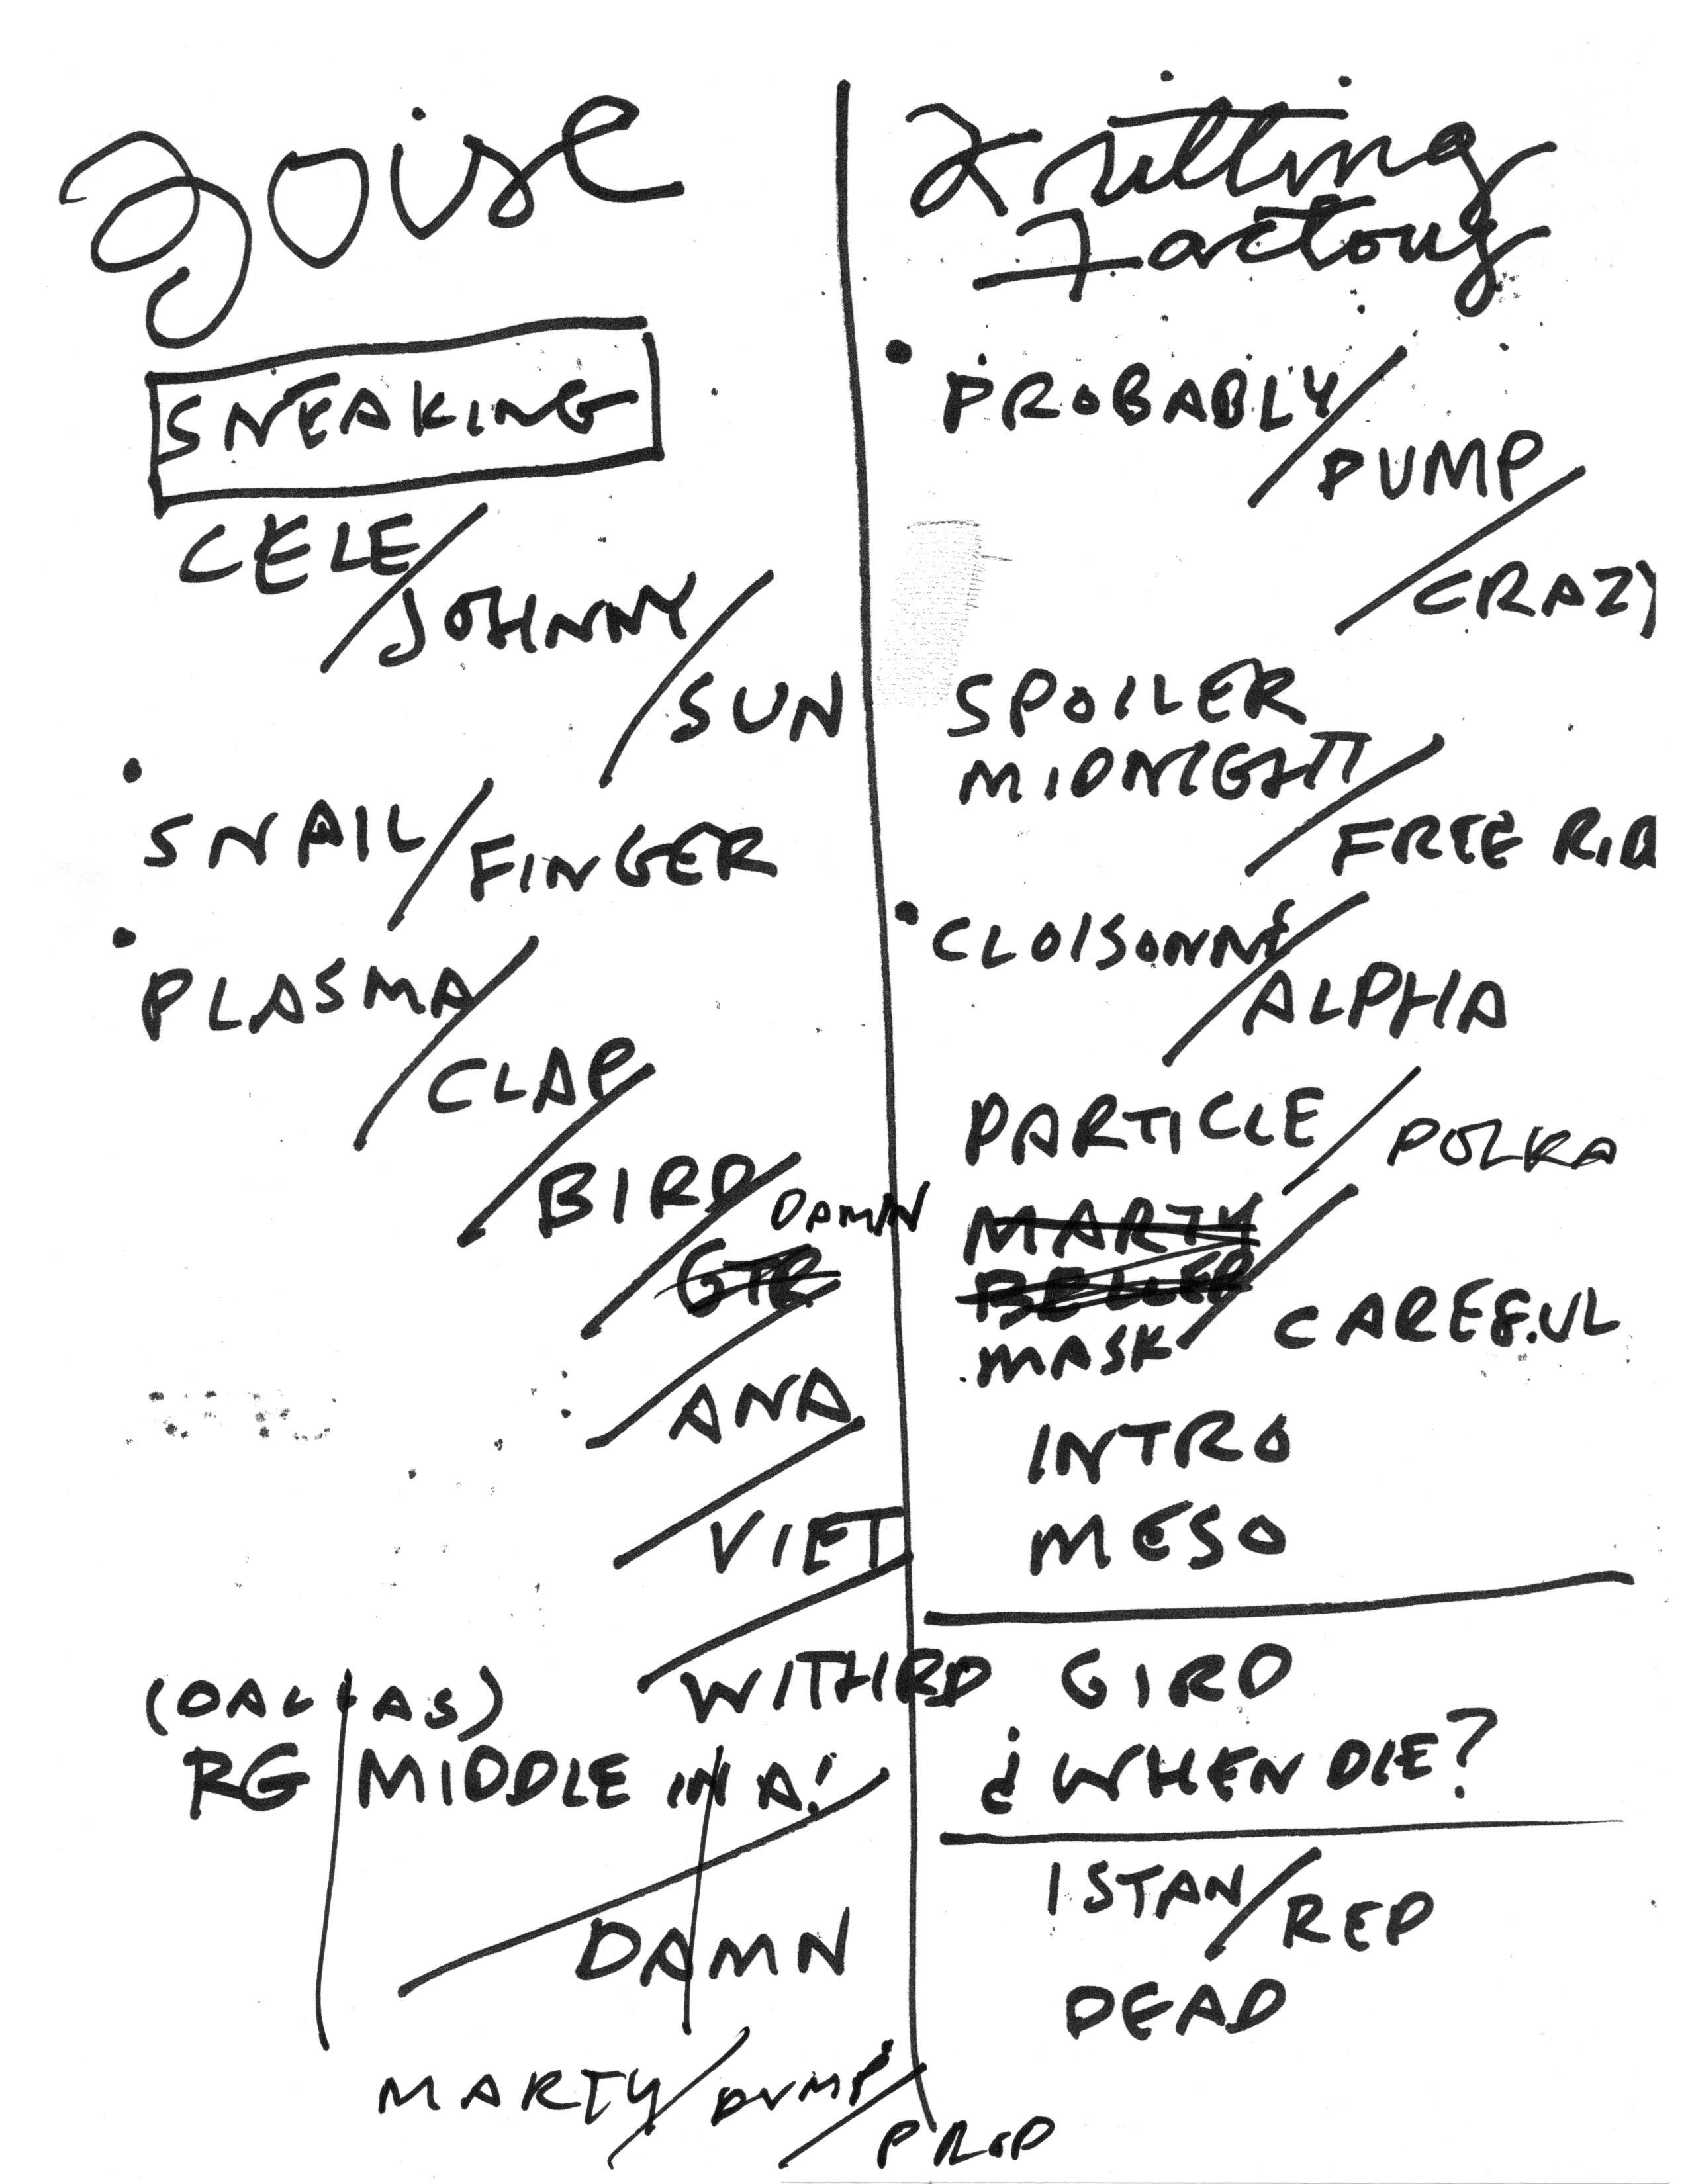 Boise
SNEAKING
CELE/
JOHNNY/
SUN
• SNAIL/FINGER
• PLASMA/
CLAP/
BIRD/DAMN
GTR
ANA
VIET
WITHRD
(DALLAS)
RG/MIDDLE IN A!
DAMN
MARTY/PUMP/
PROP
Knitting
Factory
• PROBABLY/
PUMP/
CRAZY
SPOILER
MIDNIGHT/
FREE RID
• CLOISONNE/
ALPHA
PARTICLE/POLKA
MARTY
BELLER
MASK/CAREFUL
INTRO
MESO
GIRD
¿WHEN DIE?
ISTAN/REP
DEAD